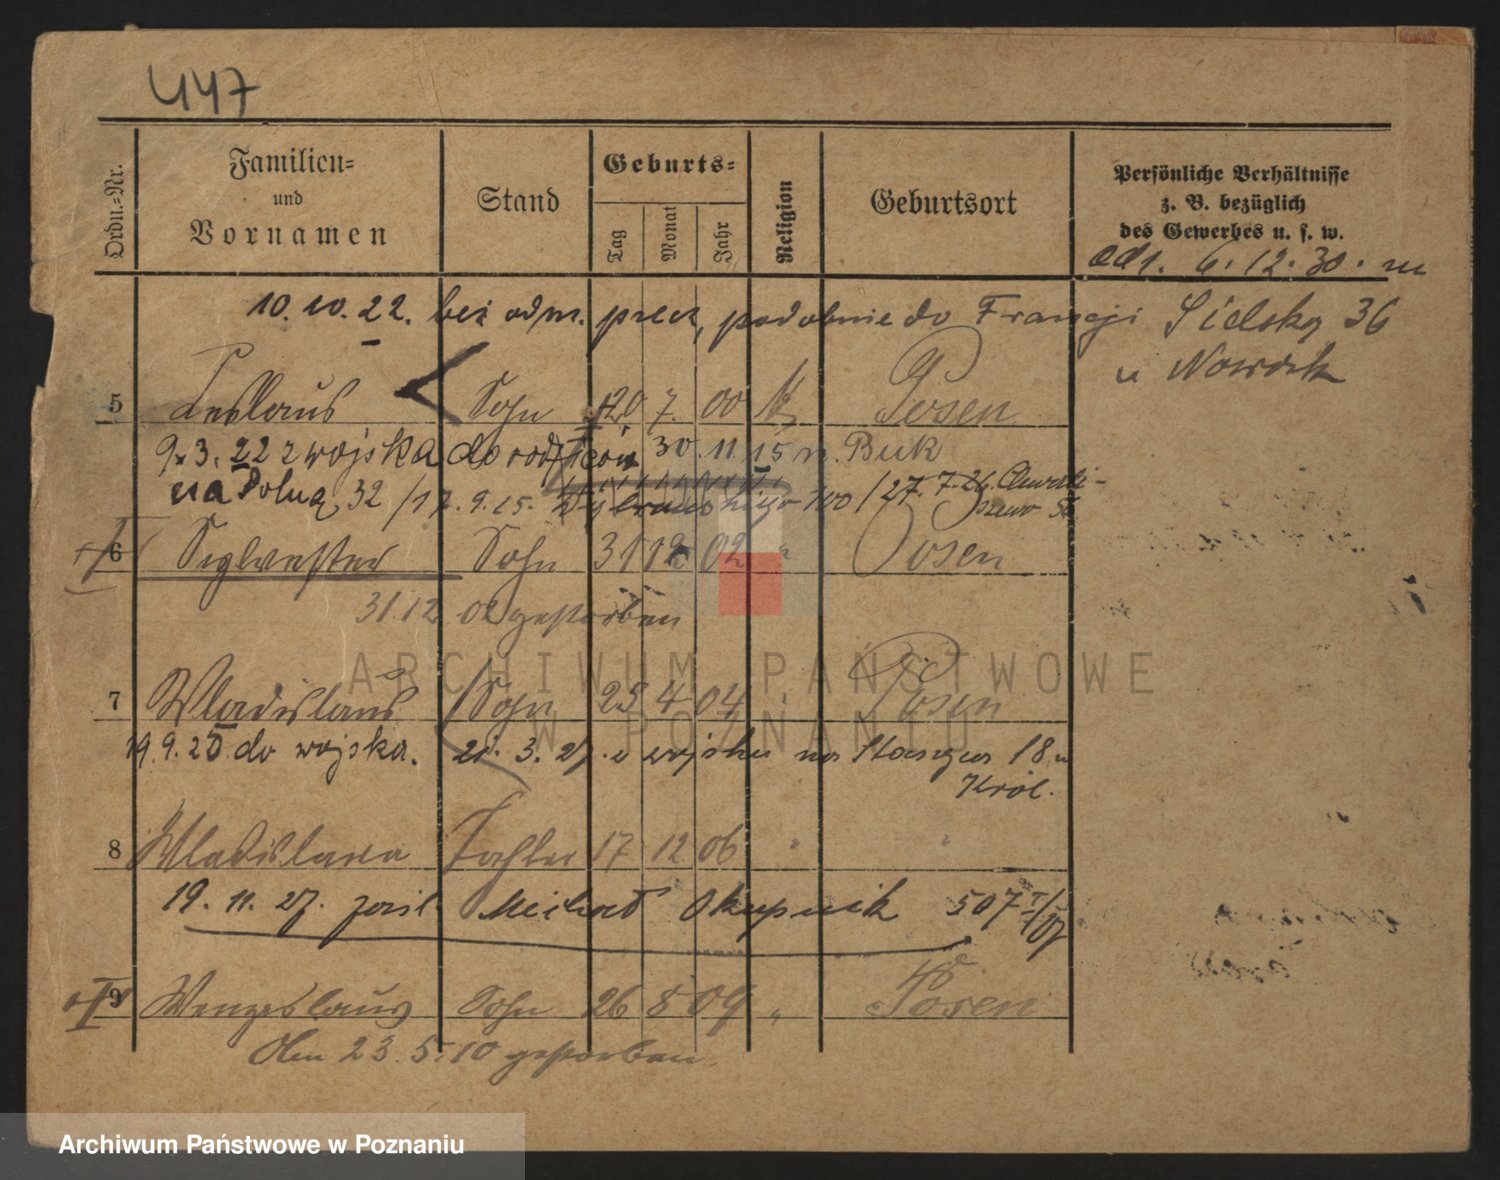 447
Ordn.-Nr.
Familien=
und
Vornamen
Stand
Geburts=
Tag
Monat
Jahr
Religion
Geburtsort
Persönliche Verhältnisse
z. B. bezüglich
des Gewerbes u. s. w.
6. 12. 30. m
10. 10. 22. bez odm. precz, podobnie do Francji
Sielska 36
u Nowak
5 Leslaus Sohn 20 7. 00 k Posen
9. 3. 22 z wojska do rodziców 30. 11. 15 n. Buk
na Polną 32 / 17. 9. 15. 100 / 27. 7. 26.
6 Sylvester Sohn 31 12 02 " Posen
31. 12 02 gestorben
7 Wladislaus Sohn 25 4 04 " Posen
19. 9. 25 do wojska. 21. 3. 27. z wojska na 18 u
Król.
8 Wladislawa Tochter 17 12 06 " "
19. 11. 27. zaśl. Okupnik 507
9 Wenzeslaus Sohn 26 8 09 " Posen
Den 23. 5. 10 gestorben
ARCHIWUM PAŃSTWOWE
W POZNANIU
Archiwum Państwowe w Poznaniu